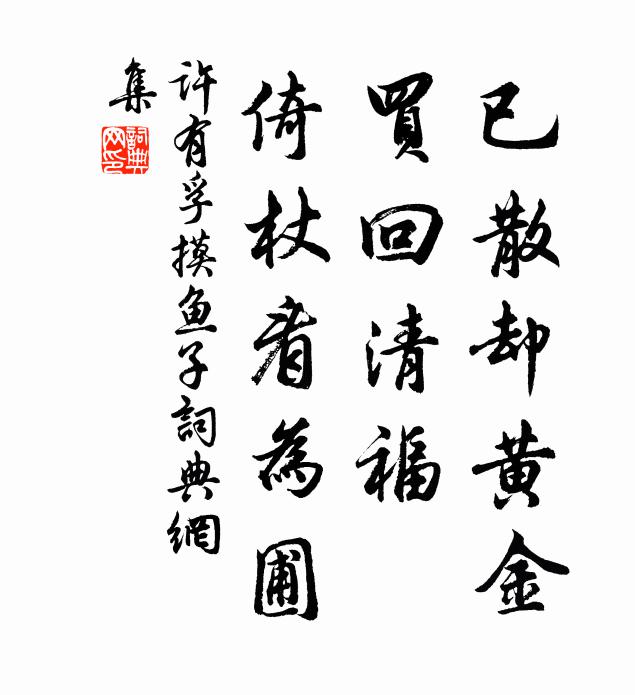 已散却黄金
買回清福
倚杖看為圃
許有孚摸鱼子詞典網
集
詞典网印